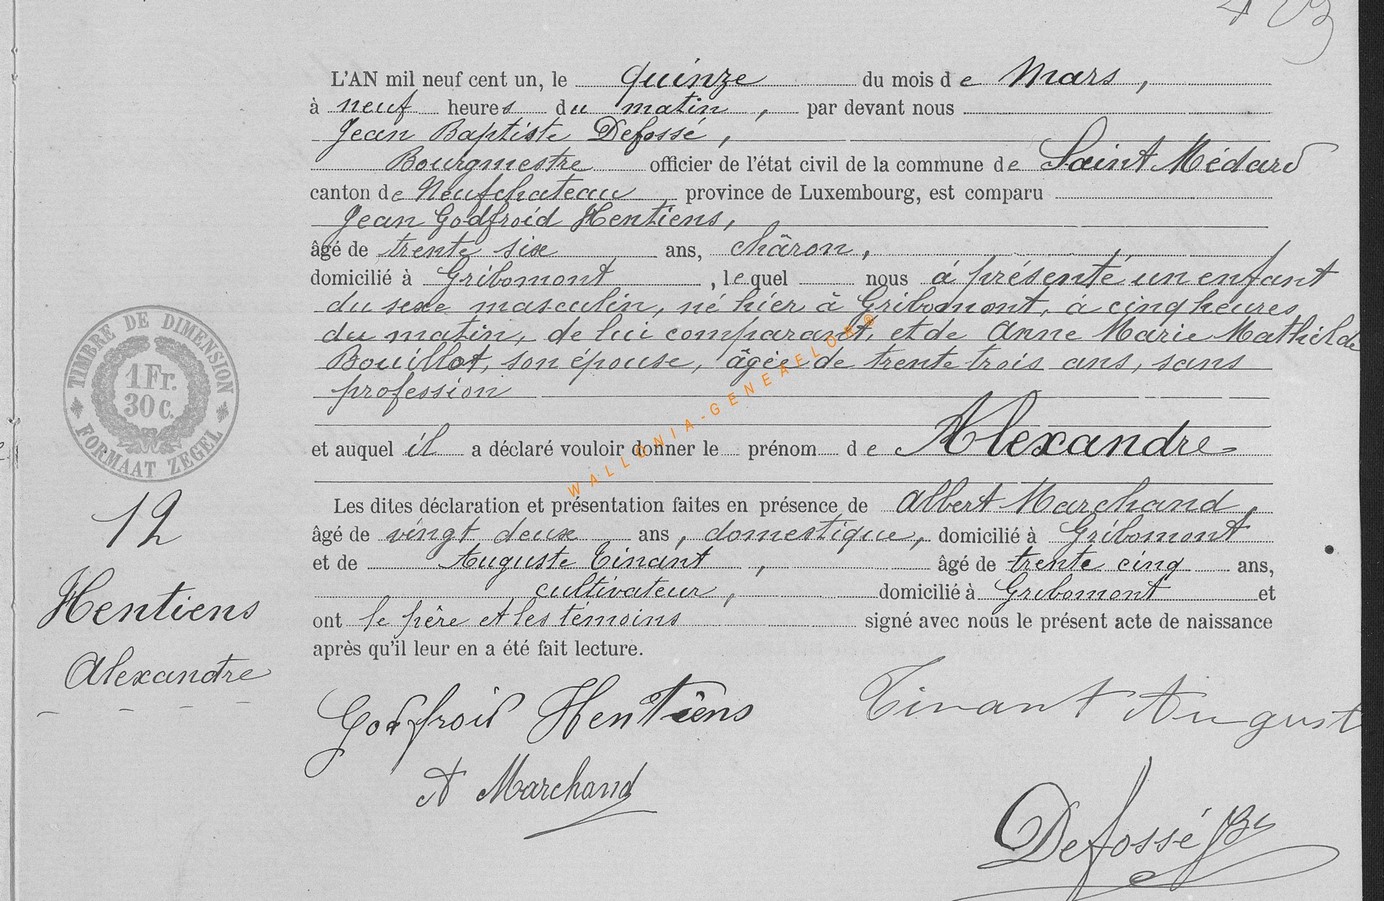 L'AN mil neuf cent un, le quinze du mois de Mars,
à neuf heures du matin, par devant nous
Jean Baptiste Defossé,
Bourgmestre officier de l'état civil de la commune de Saint Médard
canton de Neufchateau province de Luxembourg, est comparu
Jean Godfroid Hentiens,
âgé de trente six ans, châron,
domicilié à Gribomont, lequel nous à présenté un enfant
du sexe masculin, né hier à Gribomont, à cinq heures
du matin, de lui comparant, et de Anne Marie Mathilde
Bouillot, son épouse, âgée de trente trois ans, sans
profession
et auquel il a déclaré vouloir donner le prénom de Alexandre
Les dites déclaration et présentation faites en présence de Albert Marchand,
âgé de vingt deux ans, domestique, domicilié à Gribomont
et de Auguste Tinant, âgé de trente cinq ans,
cultivateur, domicilié à Gribomont et
ont le père et les témoins signé avec nous le présent acte de naissance
après qu'il leur en a été fait lecture.
TIMBRE DE DIMENSION
1 Fr.
30 C.
FORMAAT ZEGEL
12
Hentiens
Alexandre
Godfroid Hentiens
Tinant August
A Marchand
Defossé JBte
WALLONIA-GENEAFLORE